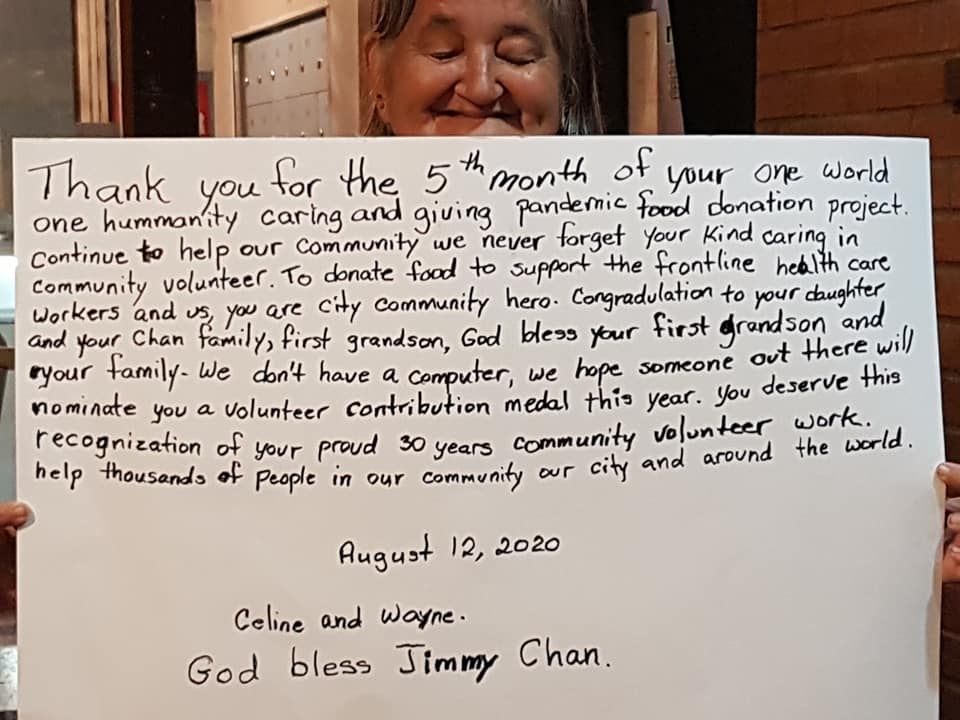 Thank you for the 5th month of your one world
one hummanity caring and giving pandemic food donation project.
Continue to help our community we never forget your kind caring in
community volunteer. To donate food to support the frontline health care
workers and us, you are city community hero. Congradulation to your daughter
and your Chan family, first grandson, God bless your first grandson and
your family- We don't have a computer, we hope someone out there will
nominate you a volunteer contribution medal this year. You deserve this
recognization of your proud 30 years community volunteer work.
help thousands of people in our community our city and around the world.
August 12, 2020
Celine and Wayne.
God bless Jimmy Chan.